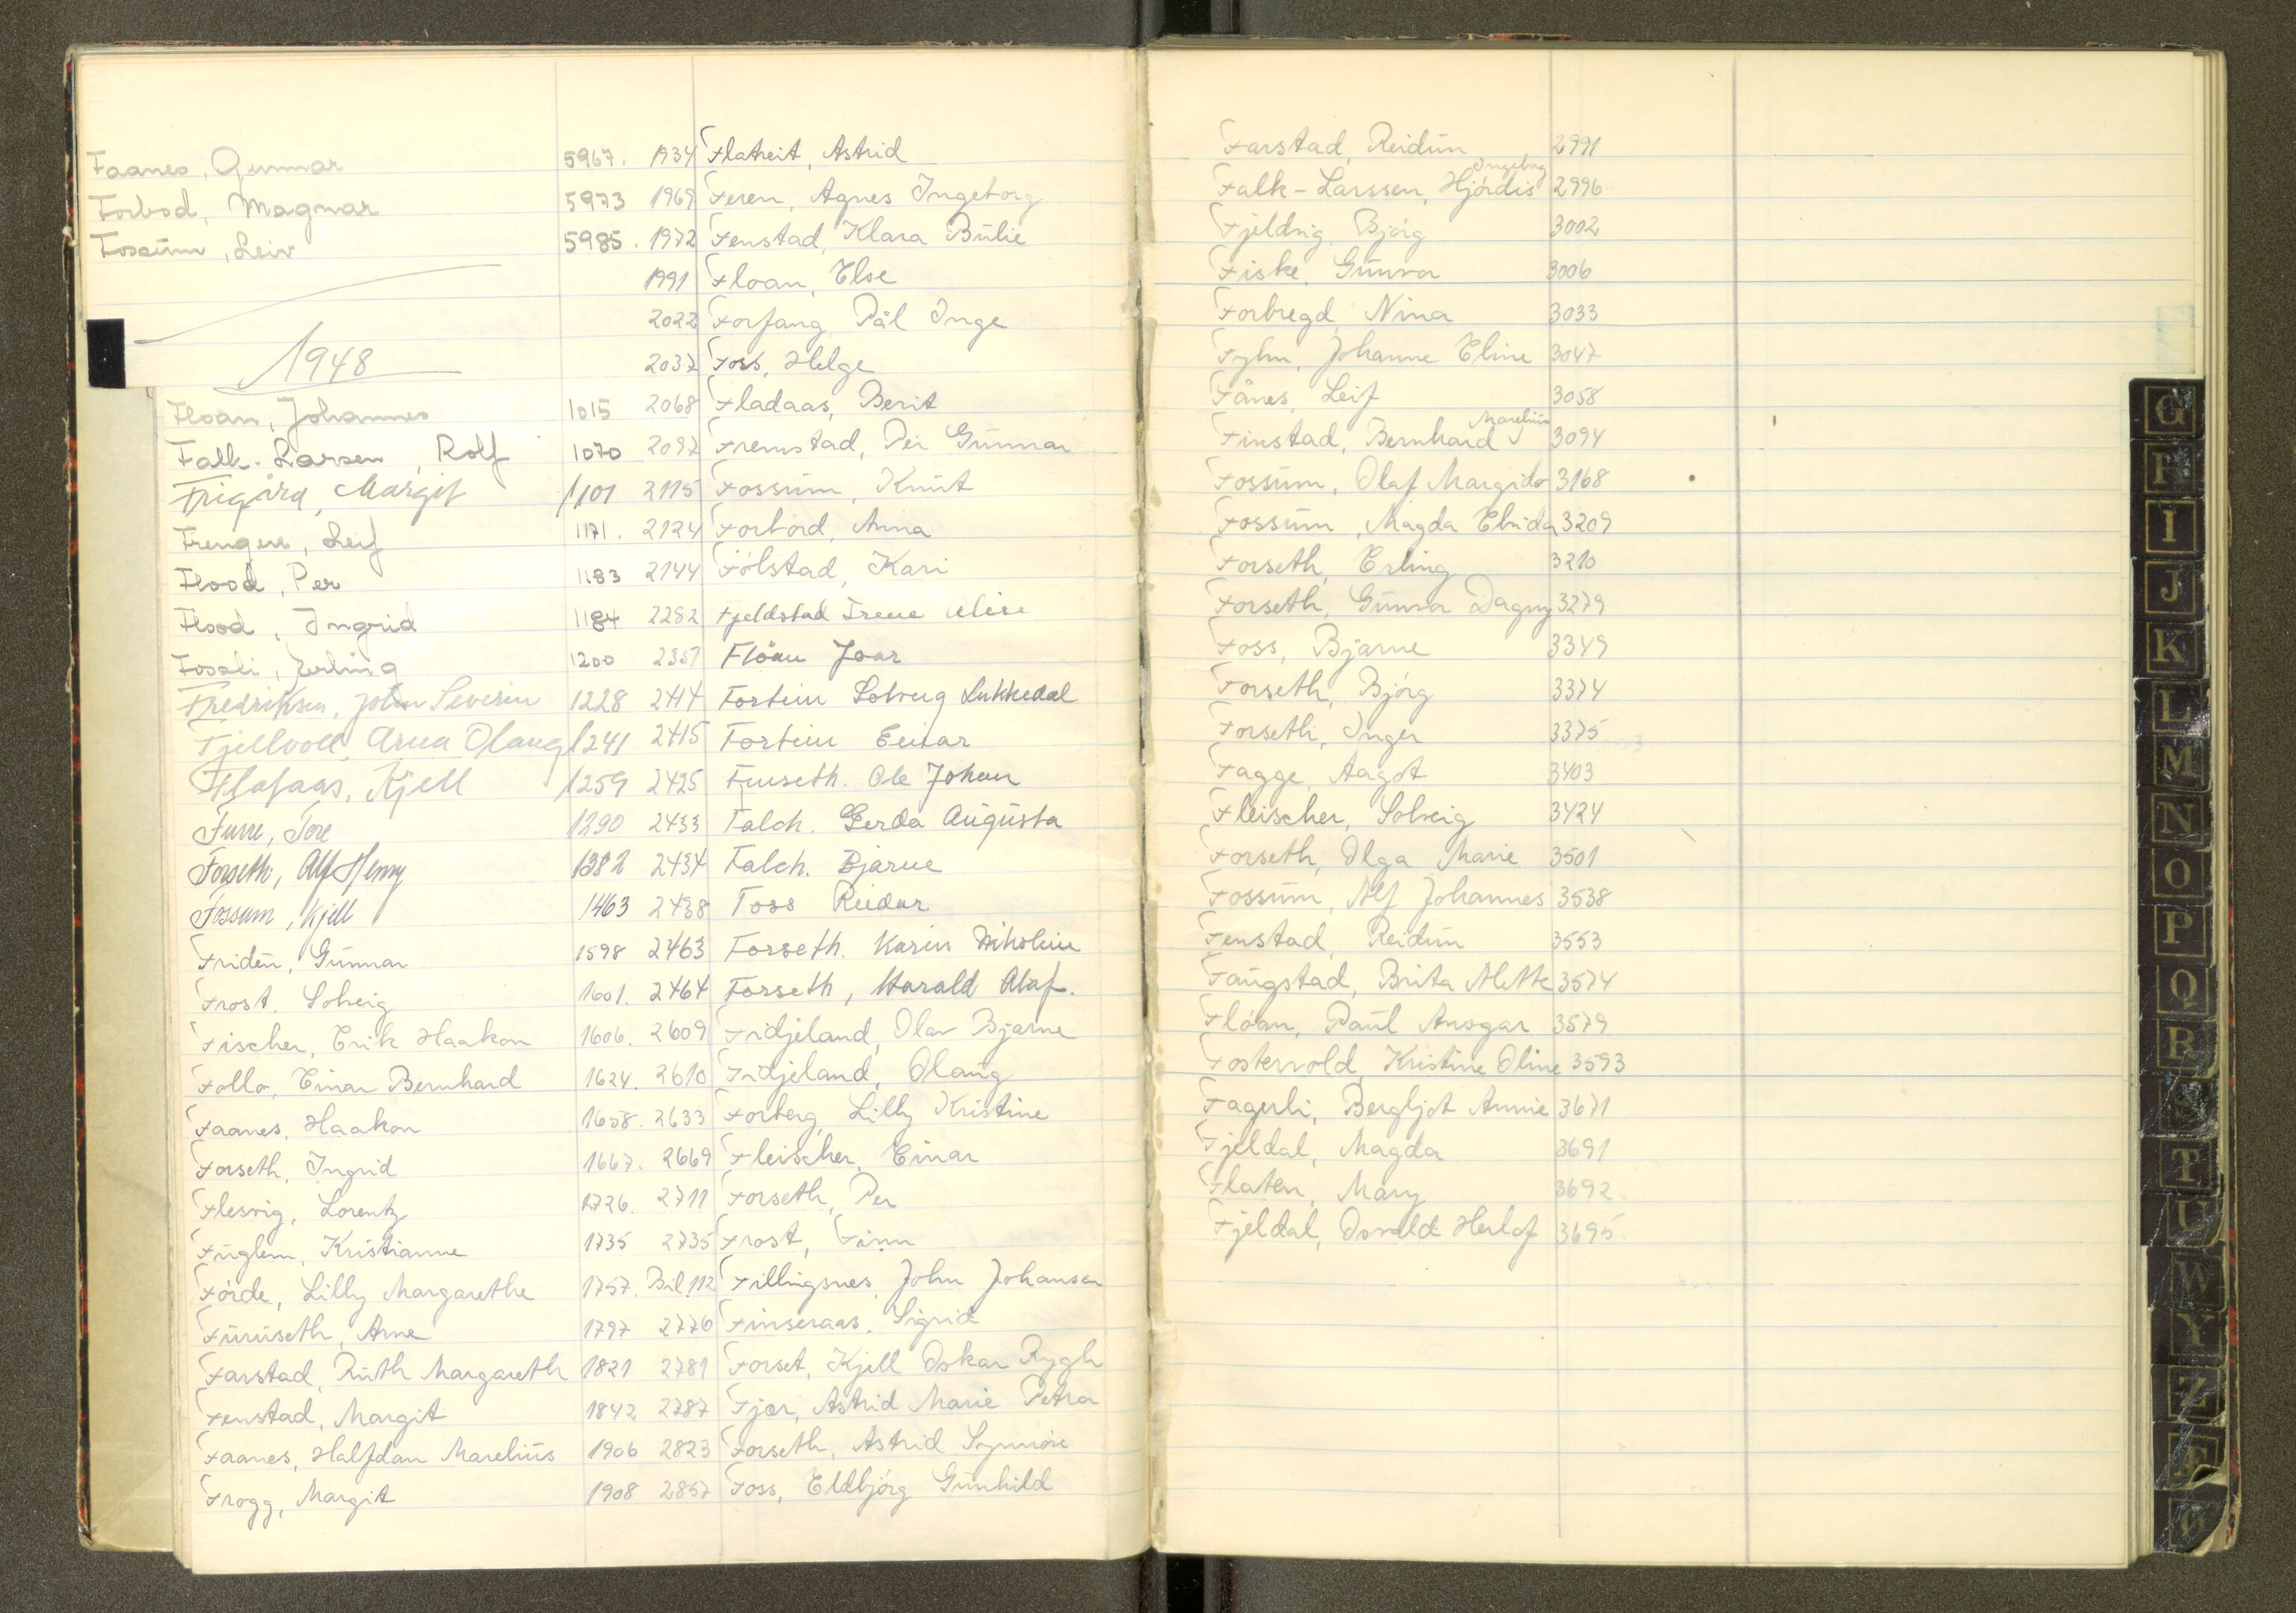 Faanes, Gunnar 5967.
Forbod, Magnar 5973
Fossum, Leiv 5985.
1948
Floan, Johannes 1015
Falk-Larsen, Rolf 1070
Frigård, Margit 1101
Frengen, Leif 1171.
Flood, Per 1183
Flood, Ingrid 1184
Fossli, Erling 1200
Fredriksen, John Severin 1228
Fjellvoll, Arna Olaug 1241
Flataas, Kjell 1259
Furre, Tore 1290
Forseth, Alf Henry 1382
Fossum, Kjell 1463
Fridén, Gunnar 1598
Frost, Solveig 1601.
Fischer, Erik Haakon 1606.
Follo, Einar Bernhard 1624.
Faanes, Haakon 1658.
Forseth, Ingrid 1667.
Flesvig, Lorentz 1726.
Fuglem, Kristianne 1735
Förde, Lilly Margarethe 1757.
Furuseth, Arne 1797
Farstad, Ruth Margareth 1821
Fenstad, Margit 1842
Faanes, Halfdan Marelius 1906
Frogg, Margit 1908
1934 Flatreit, Astrid
1969 Feren, Agnes Ingeborg
1972 Fenstad, Klara Bülie
1991 Floan, Else
2022 Forfang, Pål Inge
2037 Foss, Helge
2068 Fladaas, Berit
2097 Fremstad, Per Gunnar
2115 Fossum, Knut
2124 Forbord, Anna
2144 Fölstad, Kari
2282 Fjeldstad Irene Alise
2357 Flöan Joar
2414 Fortun Solveig Lukkedal
2415 Fortun Einar
2425 Furseth. Ole Johan
2433 Falch. Gerda Augusta
2434 Falch. Bjarne
2438 Foss Reidar
2463 Forseth. Karin Nikoline
2464 Forseth, Harald Olaf.
2609 Fidjeland, Olav Bjarne
2610 Fidjeland, Olaug
2633 Forberg, Lilly Kristine
2669 Fleischer, Einar
2711 Forseth, Per
2735 Frost, Finn
Bil.112 Fillingsnes, John Johansen
2776 Finseraas, Sigrid
2781 Forset, Kjell Oskar Rygh
2787 Fjær, Astrid Marie Petra
2823 Forseth, Astrid Synnöve
2857 Foss, Eldbjörg Gunhild
Farstad, Reidun 2991
Falk-Larssen, Hjördis Ingeborg 2996
Fjeldvig, Björg 3002
Fiske, Gunvor 3006
Forbregd, Nina 3033
Fyhn, Johanne Eline 3047
Fånes, Leif 3058
Finstad, Bernhard Marelius 3094
Fossum, Olaf Margido 3168
Fossum, Magda Elvida 3209
Forseth, Erling 3210
Forseth, Gunvor Dagny 3279
Foss, Bjarne 3349
Forseth, Björg 3374
Forseth, Inger 3375
Fagge, Aagot 3403
Fleischer, Solveig 3424
Forseth, Olga Marie 3501
Fossum, Alf Johannes 3538
Fenstad, Reidun 3553
Faugstad, Brita Mette 3574
Flóan, Paul Ansgar 3579
Fostervold, Kristine Oline 3593
Fagerli, Bergljot Annie 3671
Fjeldal, Magda 3691
Flaten, Mary 3692
Fjeldal, Osvald Herlof 3695.
G
H
I
J
K
L
M
N
O
P
Q
R
S
T
U
W
Y
Z
Æ
Ö